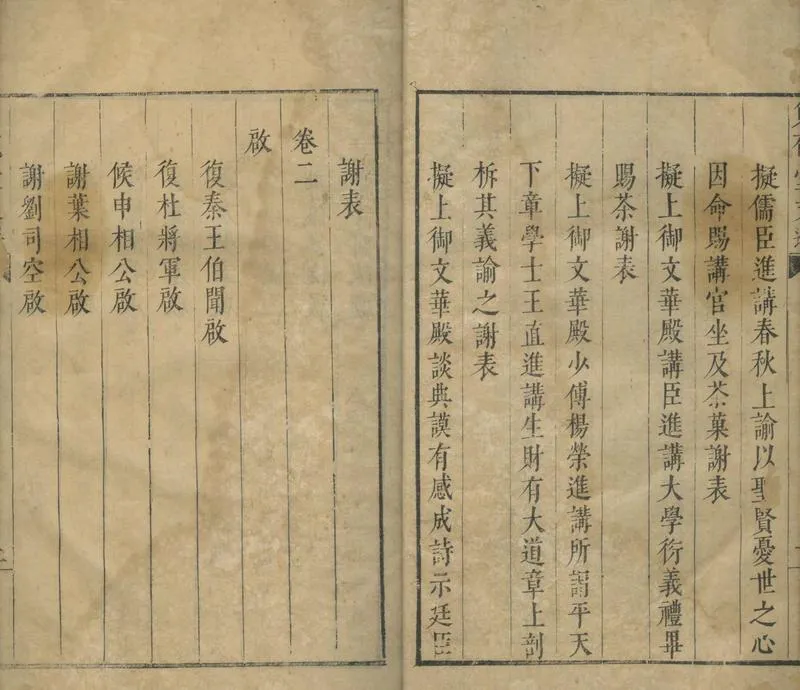 擬儒臣進講春秋上諭以聖賢憂世之心
因命賜講官坐及茶菓謝表
擬上御文華殿講臣進講大學衍義禮畢
賜茶謝表
擬上御文華殿少傅楊榮進講所謂平天
下章學士王直進講生財有大道章上剖
析其義諭之謝表
擬上御文華殿談典謨有感成詩示廷臣
謝表
卷二
啟
復秦王伯聞啟
復杜將軍啟
候申相公啟
謝葉相公啟
謝劉司空啟